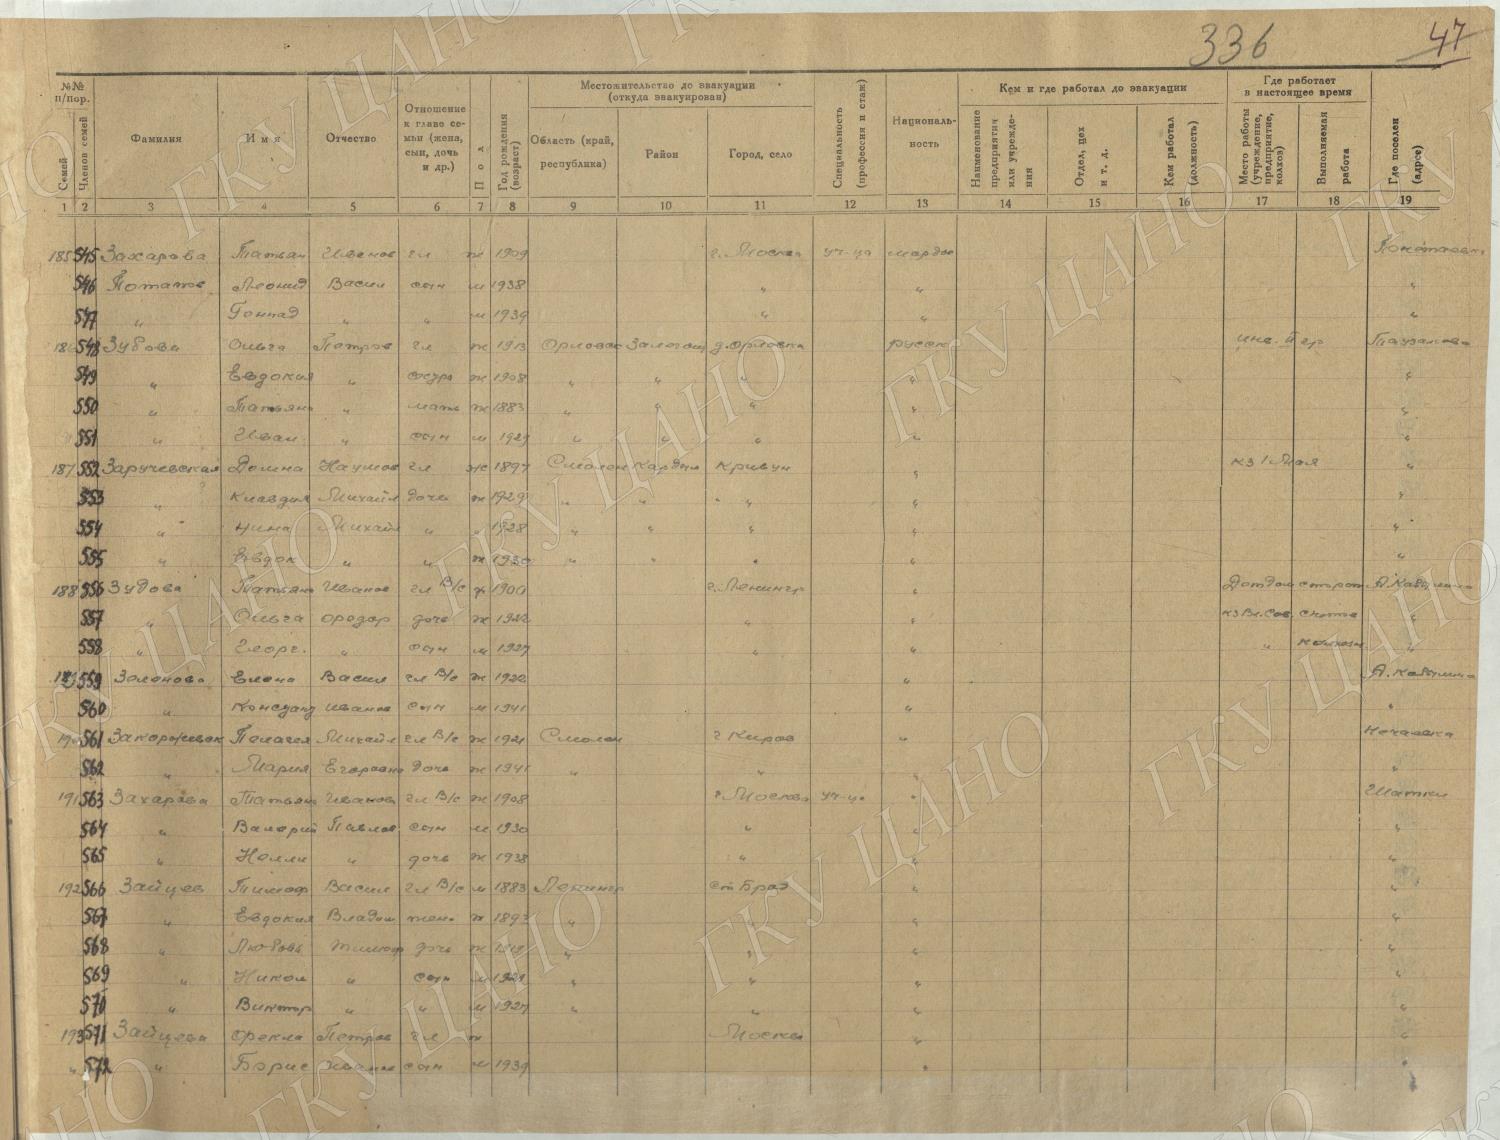 336
47
№№ п/пор.
Семей
Членов семей
Фамилия
Имя
Отчество
Отношение к главе семьи (жена, сын, дочь и др.)
Пол
Год рождения (возраст)
Местожительство до эвакуации (откуда эвакуирован)
Область (край, республика)
Район
Город, село
Специальность (профессия и стаж)
Националь-ность
Кем и где работал до эвакуации
Наименование предприятия или учреждения
Отдел, цех и т. д.
Кем работал (должность)
Где работает в настоящее время
Место работы (учреждение, предприятие, колхоз)
Выполняемая работа
Где поселен (адрес)
1 2 3 4 5 6 7 8 9 10 11 12 13 14 15 16 17 18 19
185 545 Захарова Татьян Иванов гл ж 1909 г. Москва уч-ца мордов
546 Потапов Леонид Васил сын м 1938 " " "
547 " Геннад " " м 1939 " " "
548 Зубова Ольга Петров гл ж 1913 Орловс Залегощ д. Орловка русск инв. II гр
549 " Евдокия " сестра ж 1908 " " " " "
550 " Татьяна " мать ж 1883 " " " " "
551 " Иван " сын м 1929 " " " " "
187 552 Заручевская Домна Наумов гл ж 1897 Смолен Кардым Кривун " кз 1 Мая "
553 " Клавдия Михайл дочь ж 1929 " " " " "
554 " Нина Михайл " " 1928 " " " " "
555 " Евдок " " ж 1930 " " " " "
188 556 Зудова Татьяна Иванов гл В/с ж 1900 г. Ленингр " Детдом сторож
557 " Ольга Федор дочь ж 1922 " " "
558 " Георг. " сын м 1927 " " " "
559 Зеленова Елена Васил гл В/с ж 1922 "
560 " Иванов сын м 1941 " "
561 Пелагея Михайл гл В/с ж 1921 Смолен г Киров " Нечаевка
562 " Мария Егоровна дочь ж 1941 " " " "
191 563 Захарова Татьяна Иванов гл В/с ж 1908 г. Москва уч-ца " Шатки
564 " Валерий Павлов сын м 1930 " " "
565 " Нелли " дочь ж 1938 " " "
192 566 Зайцев Тимоф Васил гл В/с м 1883 Ленингр " "
567 " Евдокия Владим жена ж " " " "
568 " Любовь Тимоф дочь ж " " " "
569 " Никол " сын м " " " "
570 " Виктор " " м 1927 " " " "
193 571 Зайцева Фекла Петров гл ж Москва " "
" 572 " Борис Иванов сын м 1939 " "
ГКУ ЦАНО